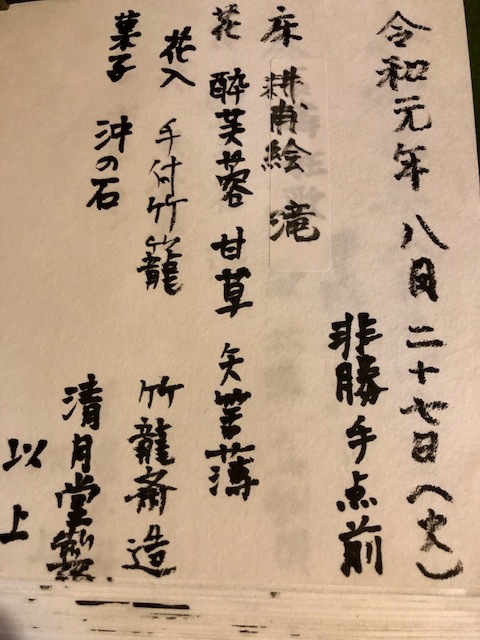 令和元年 八月 二十七日(火)
非勝手点前
床 耕甫絵 滝
花 酔芙蓉 甘草 矢筈薄
花入 手付竹籠 竹龍斎造
菓子 沖の石 清月堂製
以上